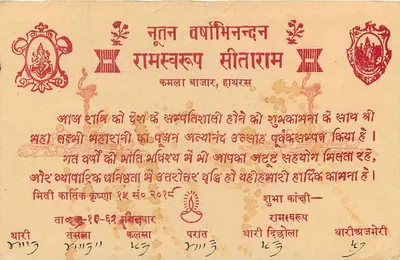 नूतन वर्षाभिनन्दन
रामस्वरूप सीताराम
कमला बाजार, हाथरस
आज रात्रि को देश के सम्पतिशाली होने की शुभकामना के साथ श्री
महा लक्ष्मी महारानी का पूजन अत्यानंद उत्साह पूर्वक सम्पन्न किया है।
गत वर्षों की भाँति भविश्य में भी आपका अटूट सहयोग मिलता रहे,
और व्यापारिक घनिष्ठता में उतरोत्तर वृद्धि हो यही हमारी हार्दिक कामना है।
मिती कार्तिक कृष्णा १५ सं० २०१८
शुभा कांक्षी—
ता० -११-६१
रामस्वरूप
थारी तसला कलसा परात थारी दिछोला थारी अजमेरी